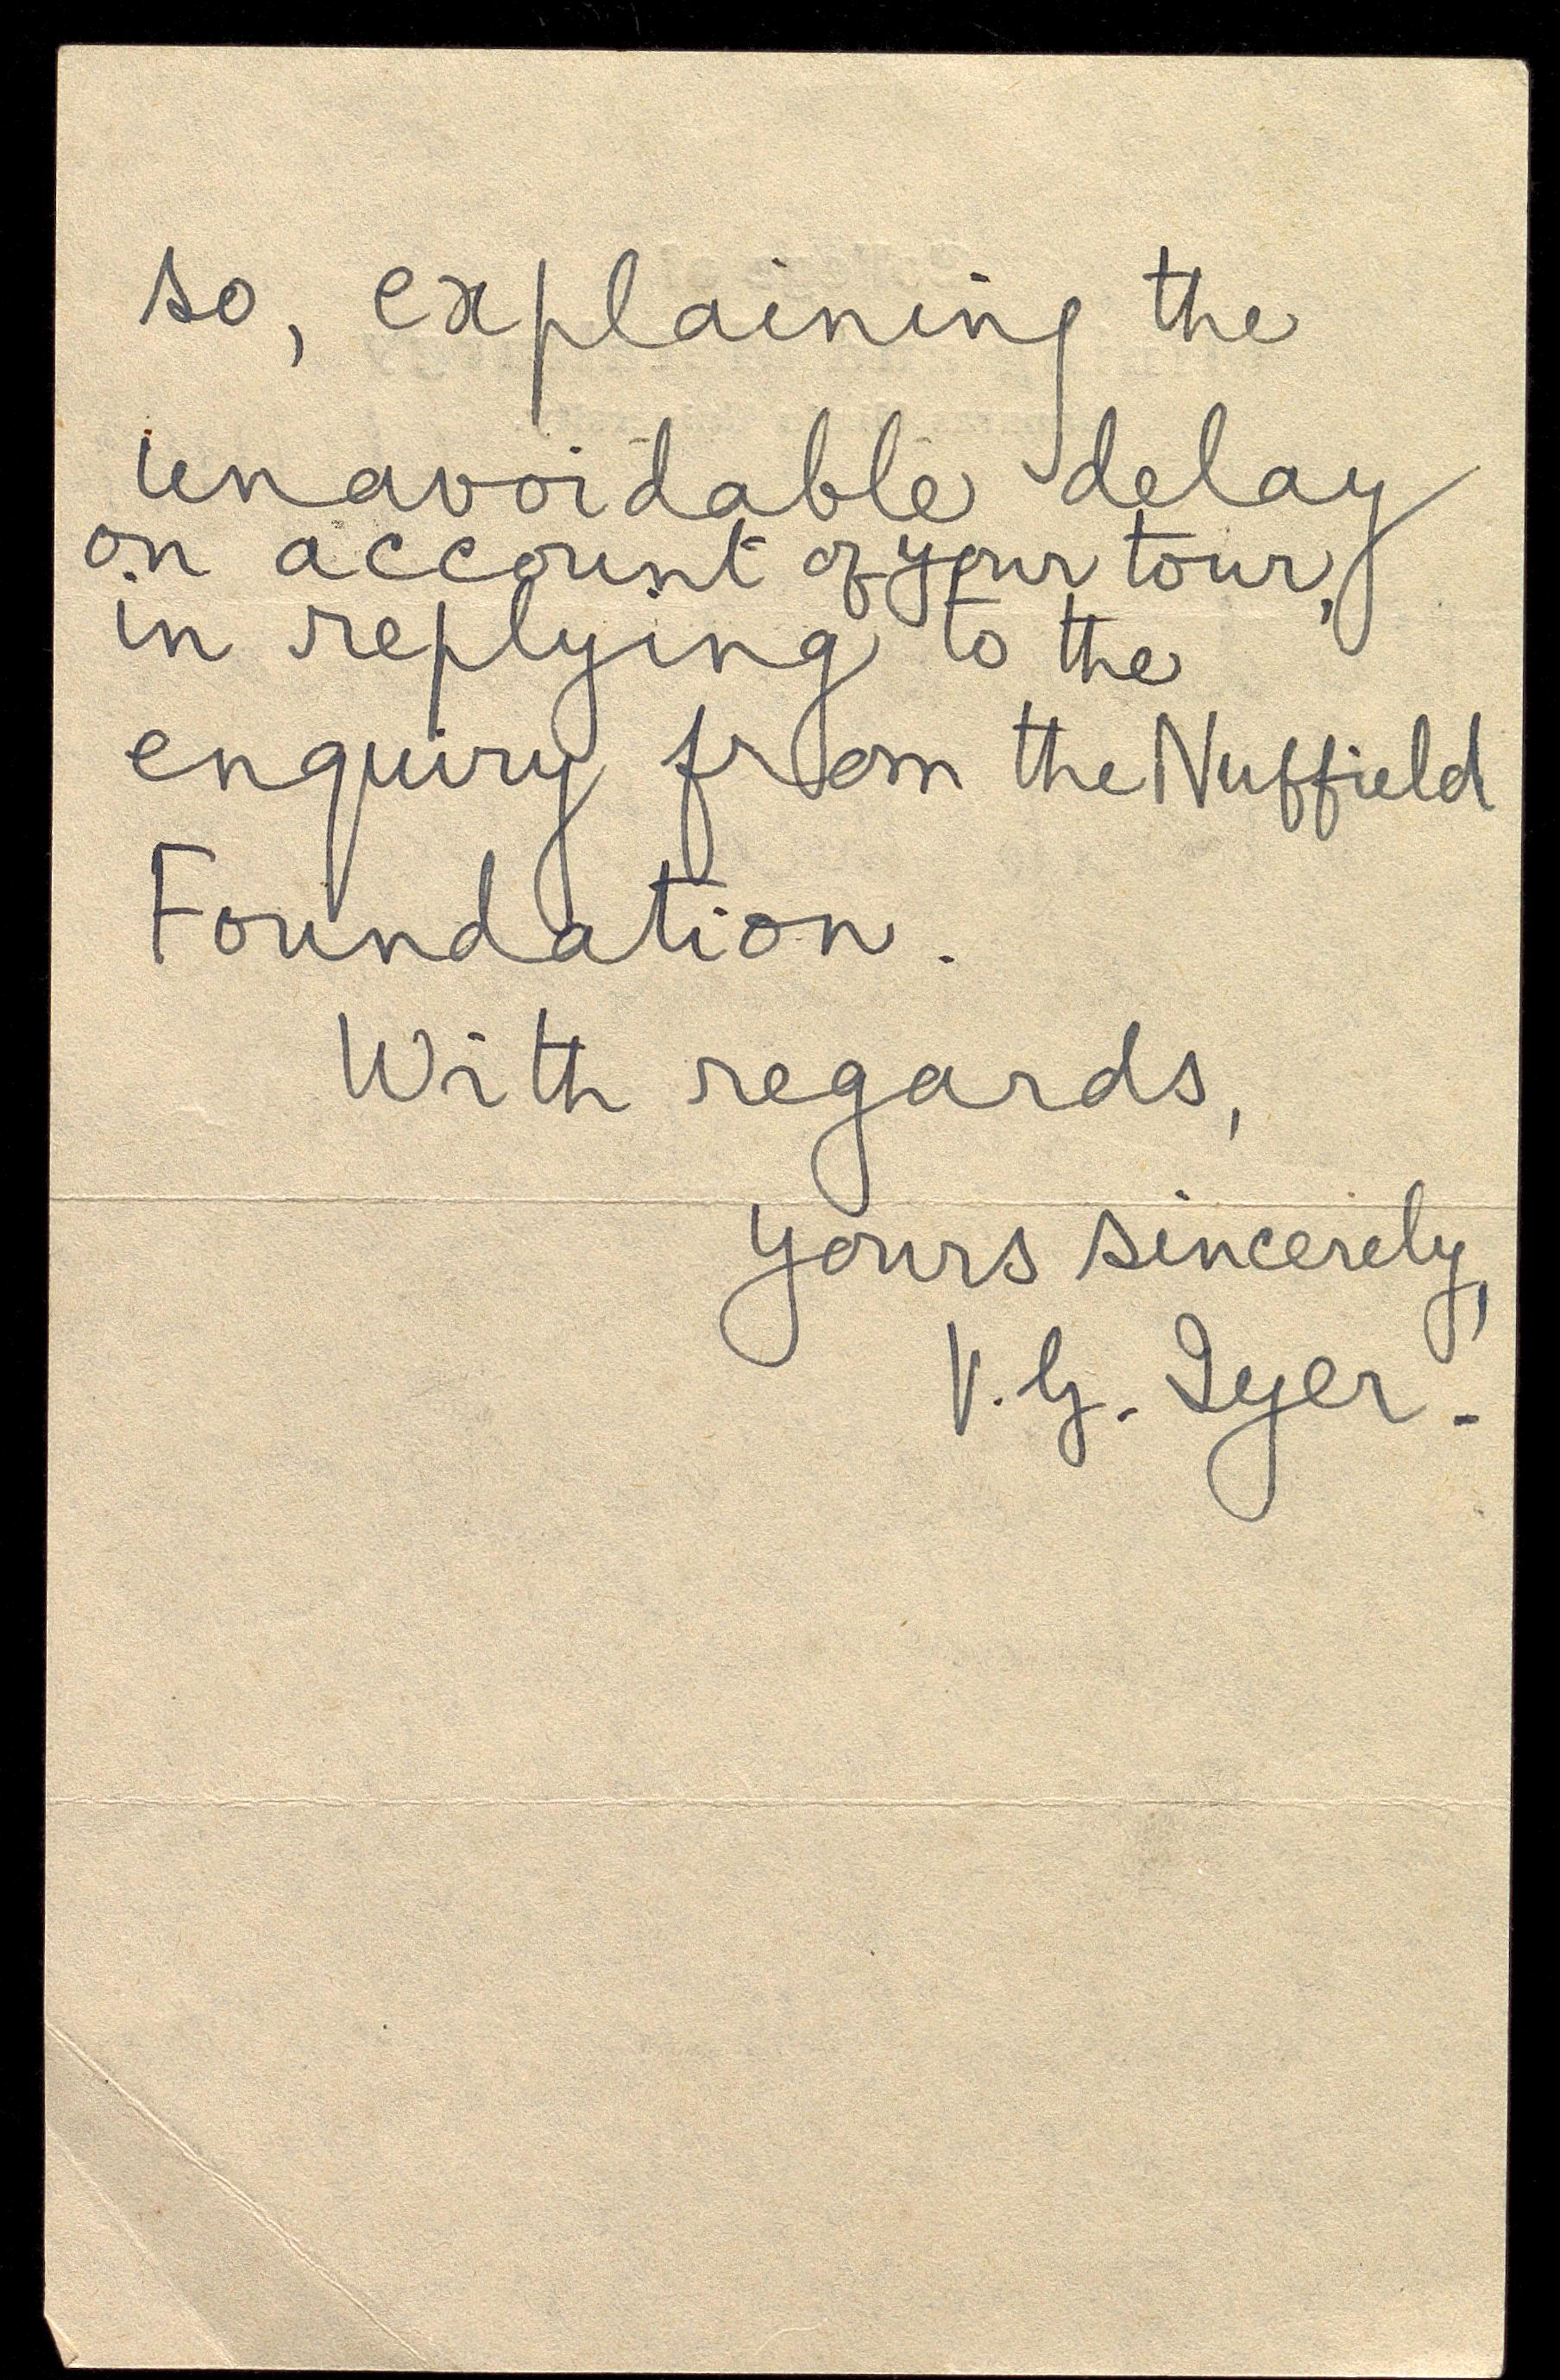 so, explaining the
unavoidable delay
on account of your tour,
in replying to the
enquiry from the Nuffield
Foundation.
With regards,
yours sincerely,
V. G. Iyer.